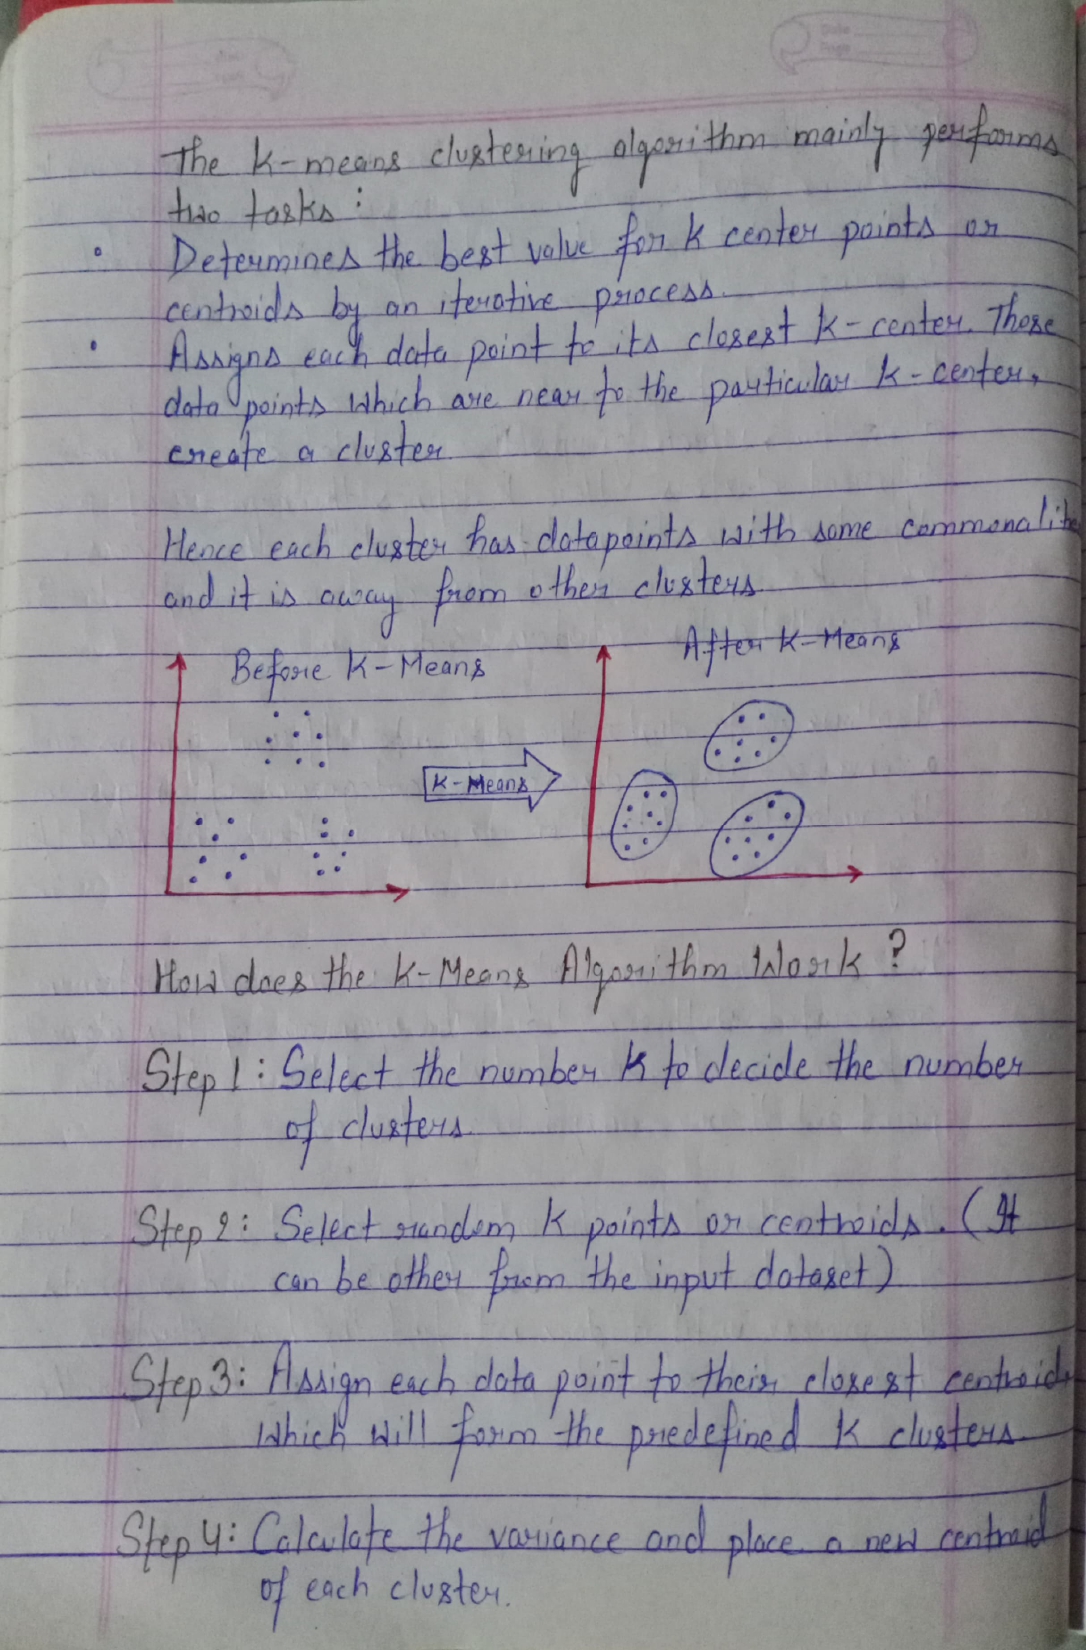 The K-means clustering algorithm mainly performs
two tasks :
• Determines the best value for K center points or
centroids by an iterative process.
• Assigns each data point to its closest k-center. Those
data points which are near to the particular k-center,
create a cluster.
Hence each cluster has datapoints with some
and it is away from other clusters.
Before K-Means
After K-Means
K-Means
How does the K-Means Algorithm Work ?
Step 1 : Select the number K to decide the number
of clusters.
Step 2 : Select random K points or centroids. ( It
can be other from the input dataset)
Step 3 : Assign each data point to their closest centroid,
which will form the predefined K clusters.
Step 4 : Calculate the variance and place a new centroid
of each cluster.